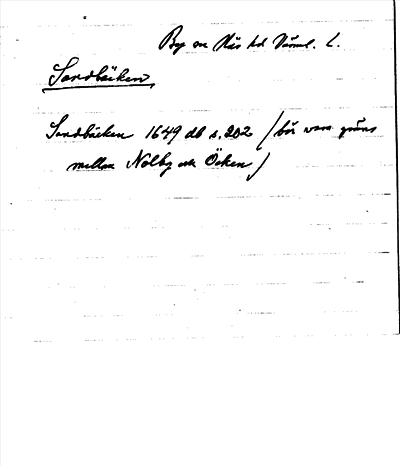 By sn Näs hd Värml. L.
Sandbäcken
Sandbäcken 1649 db s. 202 (bör vara gräns
mellan Nolby och Öcken)